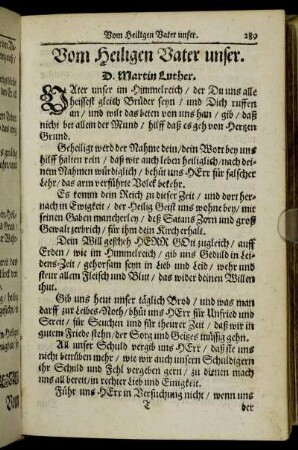 Vom Heiligen Vater unser. 289
Vom Heiligen Vater unser.
D. Martin Luther.
VAter unser im Himmelreich / der Du uns alle
heissest gleich Brüder seyn / und Dich ruffen
an / und wilt das beten von uns han / gib / daß
nicht bet allein der Mund / hilff daß es geh von Hertzen
Grund.
Geheiligt werd der Nahme dein / dein Wort bey uns
hilff halten rein / daß wir auch leben heiliglich / nach dei-
nem Nahmen würdiglich / behüt uns HErr für falscher
Lehr / das arm verführte Volck bekehr.
Es komm dein Reich zu dieser Zeit / und dort her-
nach in Ewigkeit / der Heilig Geist uns wohne bey / mit
seinen Gaben mancherley / deß Satans Zorn und groß
Gewalt zerbrich / für ihm dein Kirch erhalt.
Dein Will gescheh HERR GOtt zugleich / auff
Erden / wie im Himmelreich / gib uns Gedult in Lei-
dens-Zeit / gehorsam seyn in Lieb und Leid / wehr und
steur allem Fleisch und Blut / das wider deinen Willen
thut.
Gib uns heut unser täglich Brod / und was man
darff zur Leibes-Noth / bhüt uns HErr für Unfried und
Streit / für Seuchen und für theurer Zeit / daß wir in
gutem Friede stehn / der Sorg und Geitzes müssig gehn.
All unser Schuld vergib uns HErr / daß sie uns
nicht betrüben mehr / wie wir auch unsern Schuldigern
ihr Schuld und Fehl vergeben gern / zu dienen mach
uns all bereit / in rechter Lieb und Einigkeit.
Führ uns HErr in Versuchung nicht / wenn uns
T der